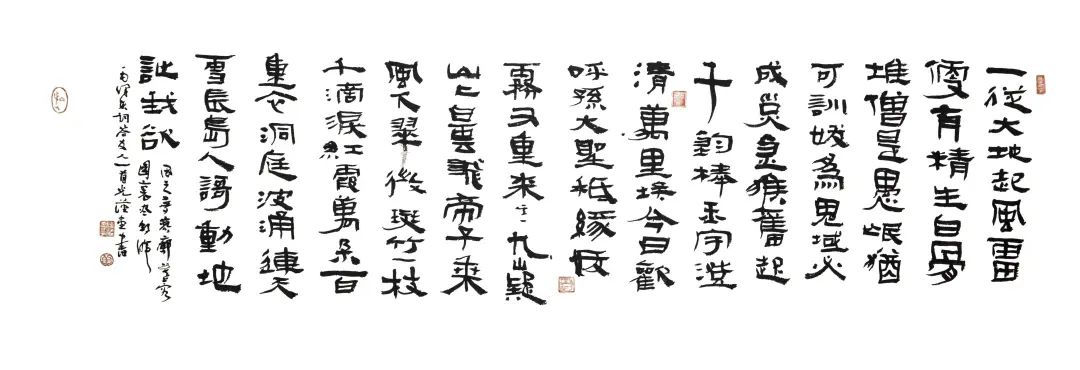 一從大地起風雷
便有精生白骨
堆僧是愚氓猶
可訓妖為鬼域必
成災金猴奮起
千鈞棒玉宇澄
清萬里埃今日歡
呼孫大聖衹緣妖
霧又重來 九嶷
山上白雲飛帝子乘
風下翠微斑竹一枝
千滴淚紅霞萬朵百
重衣洞庭波涌連天
雪長島人謌動地
詩我欲
因之夢寥廓芙蓉
國裏盡朝暉
答友人一首